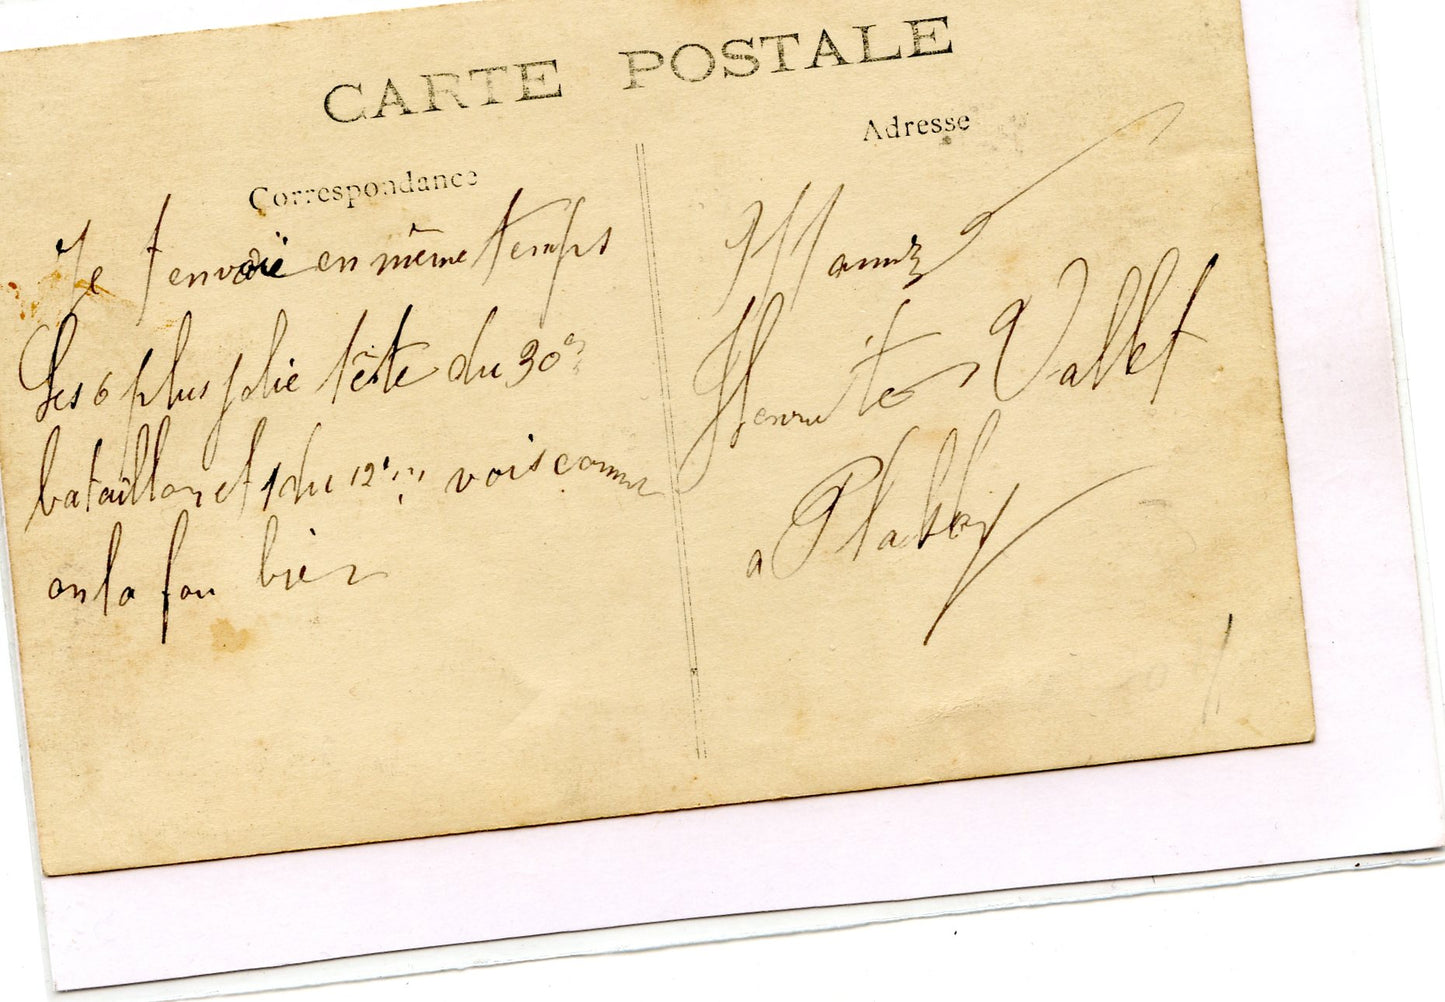 CARTE POSTALE
Correspondance
Adresse
Je t envoïe en même temps
Les 6 plus jolie tête du 30e
bataillon et 1 du 12e vois comme
on la fou bien
Henri Vallet
a